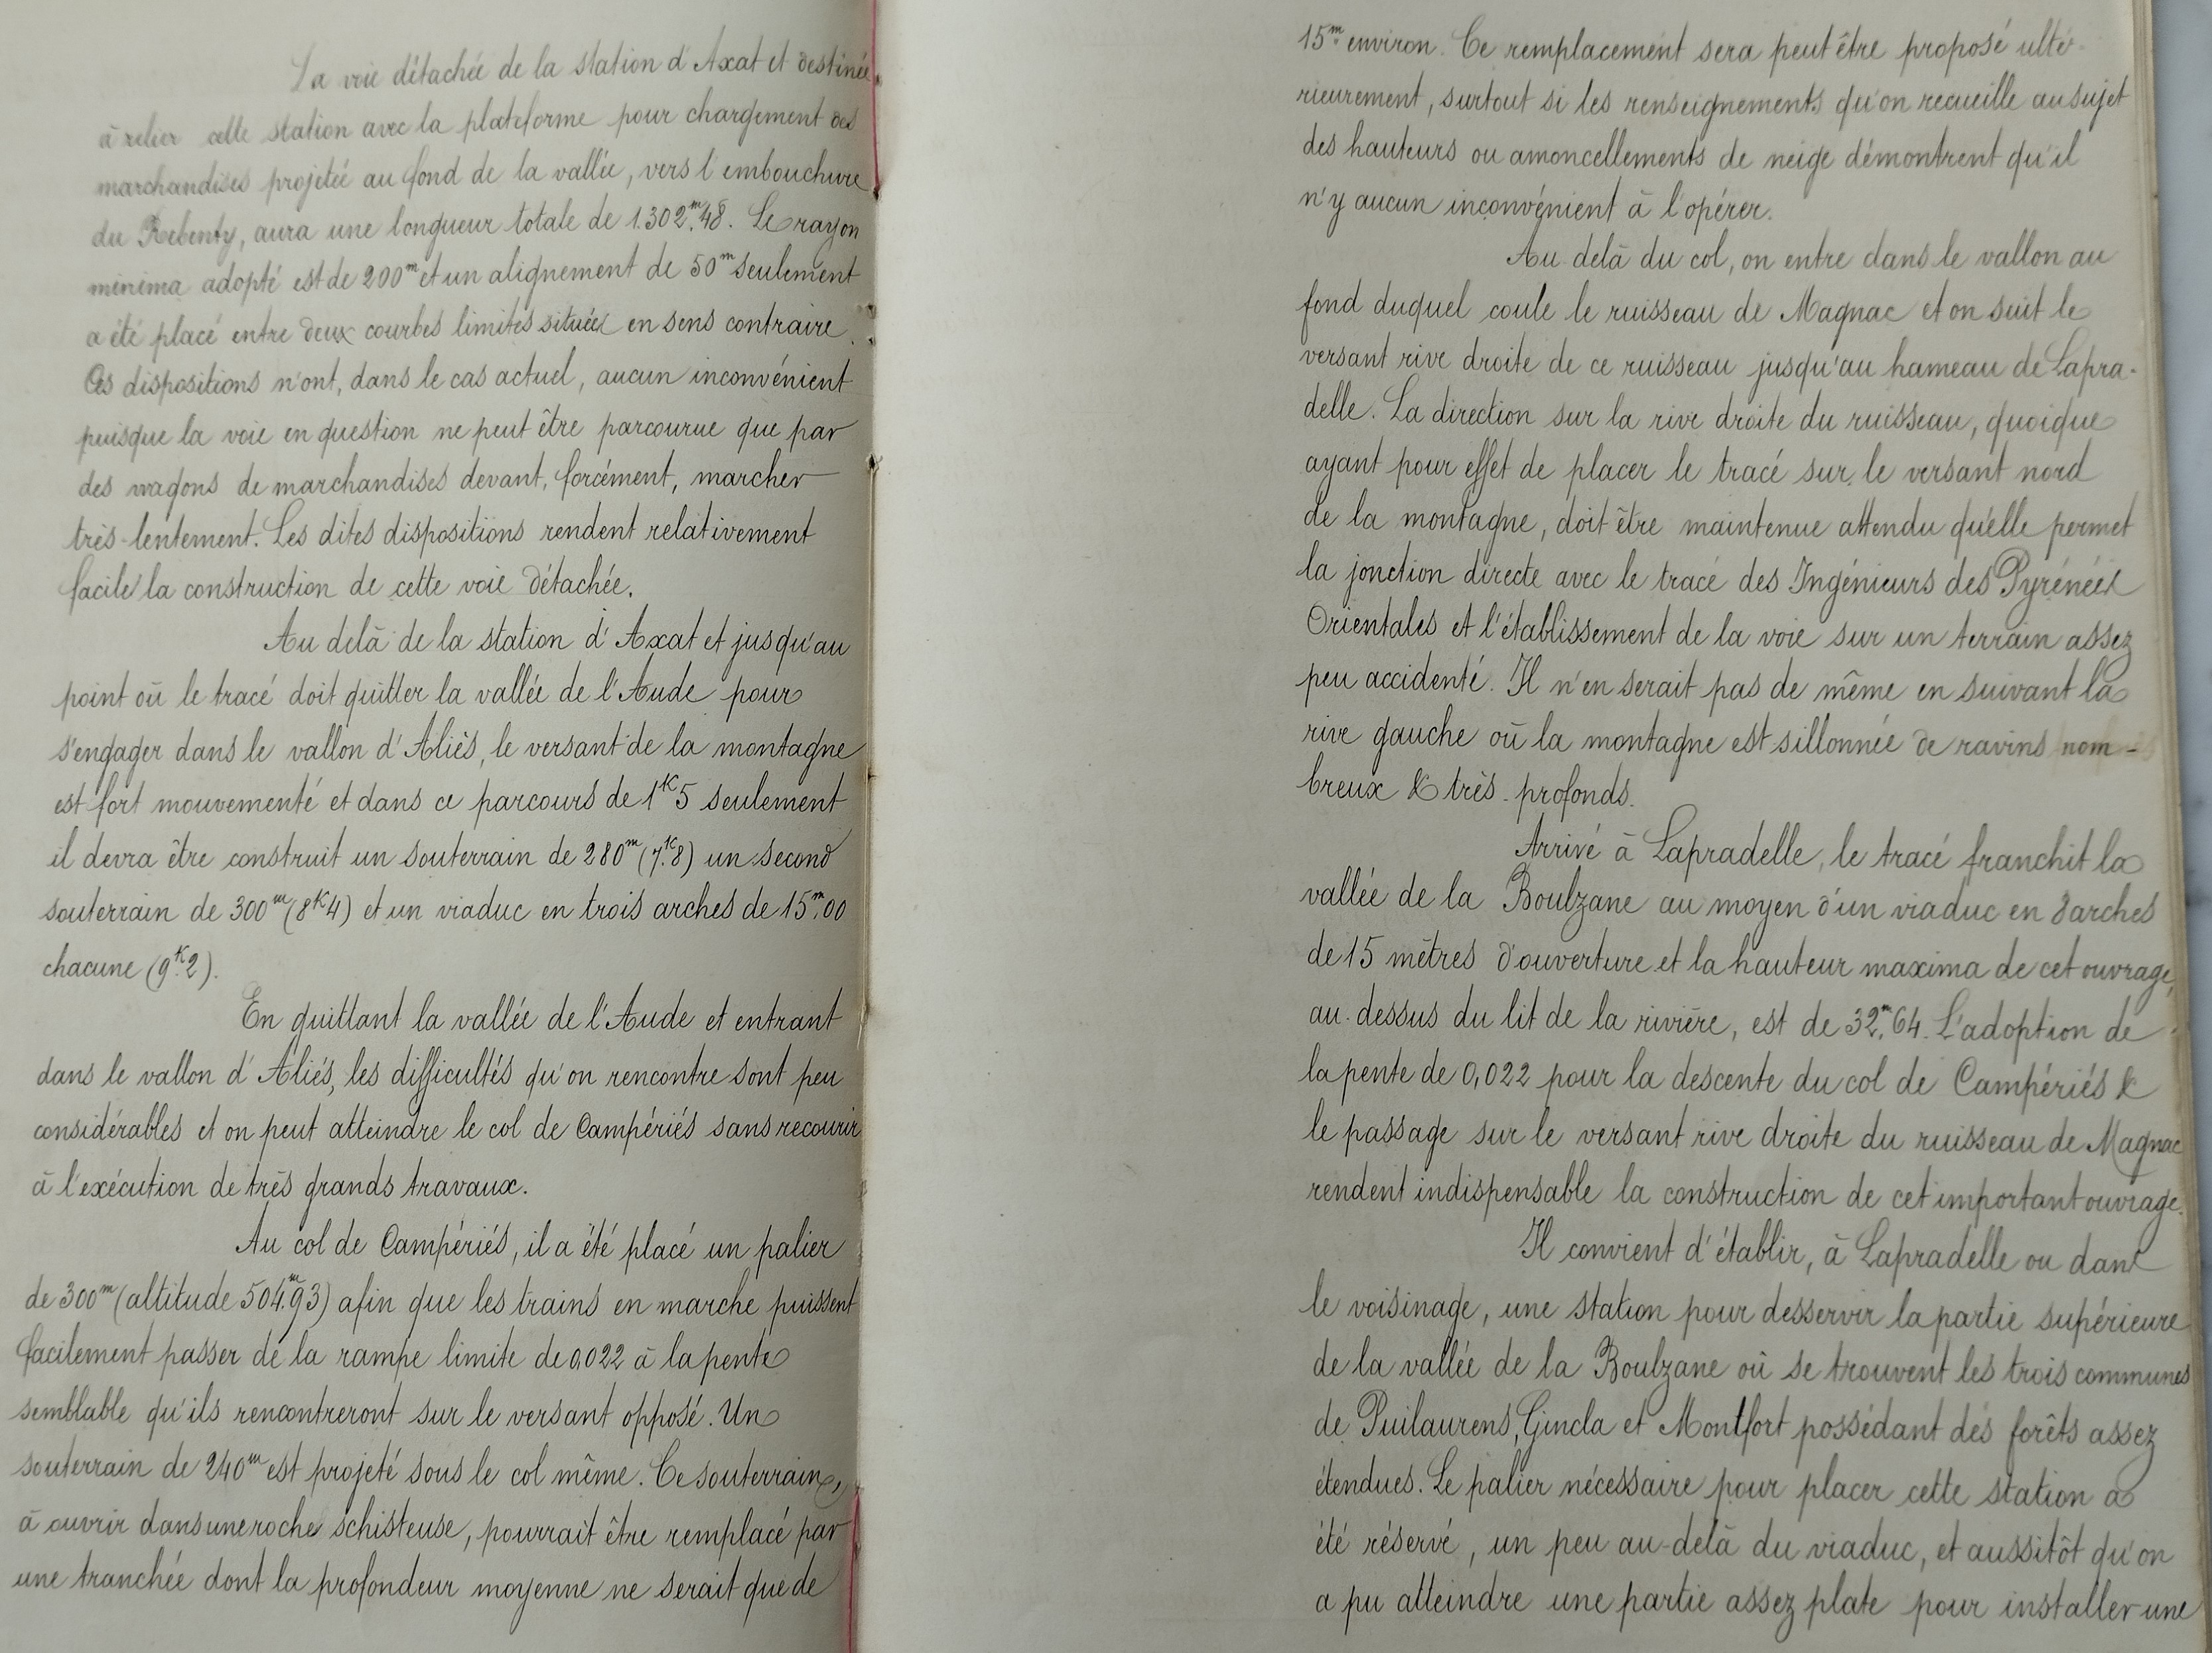 La voie détachée de la station d'Axat et destinée
à relier cette station avec la plateforme pour chargement des
marchandises projetée au fond de la vallée, vers l'embouchure
du Rebenty, aura une longueur totale de 1.302.ᵐ48. Le rayon
minima adopté est de 200ᵐ et un alignement de 50ᵐ seulement
a été placé entre deux courbes limites situées en sens contraire.
Ces dispositions n'ont, dans le cas actuel, aucun inconvénient
puisque la voie en question ne peut être parcourue que par
des wagons de marchandises devant, forcément, marcher
très-lentement. Les dites dispositions rendent relativement
facile la construction de cette voie détachée.
Au delà de la station d'Axat et jusqu'au
point où le tracé doit quitter la vallée de l'Aude pour
s'engager dans le vallon d'Aliès, le versant de la montagne
est fort mouvementé et dans ce parcours de 1ᴷ5 seulement
il devra être construit un souterrain de 280ᵐ (7.ᴷ8) un second
souterrain de 300ᵐ (8ᴷ4) et un viaduc en trois arches de 15.ᵐ00
chacune (9.ᴷ2).
En quittant la vallée de l'Aude et entrant
dans le vallon d'Aliés, les difficultés qu'on rencontre sont peu
considérables et on peut atteindre le col de Campériés sans recourir
à l'exécution de très grands travaux.
Au col de Campériés, il a été placé un palier
de 300ᵐ (altitude 504.ᵐ93) afin que les trains en marche puissent
facilement passer de la rampe limite de 0,022 à la pente
semblable qu'ils rencontreront sur le versant opposé. Un
souterrain de 240ᵐ est projeté sous le col même. Ce souterrain,
à ouvrir dans une roche schisteuse, pourrait être remplacé par
une tranchée dont la profondeur moyenne ne serait que de
15ᵐ environ. Ce remplacement sera peut être proposé ulté-
rieurement, surtout si les renseignements qu'on recueille au sujet
des hauteurs ou amoncellements de neige démontrent qu'il
n'y aucun inconvénient à l'opérer.
Au delà du col, on entre dans le vallon au
fond duquel coule le ruisseau de Magnac et on suit le
versant rive droite de ce ruisseau jusqu'au hameau de Lapra-
delle. La direction sur la rive droite du ruisseau, quoique
ayant pour effet de placer le tracé sur le versant nord
de la montagne, doit être maintenue attendu qu'elle permet
la jonction directe avec le tracé des Ingénieurs des Pyrénées
Orientales et l'établissement de la voie sur un terrain assez
peu accidenté. Il n'en serait pas de même en suivant la
rive gauche où la montagne est sillonnée de ravins nom-
breux & très-profonds.
Arrivé à Lapradelle, le tracé franchit la
vallée de la Boulzane au moyen d'un viaduc en 8 arches
de 15 mètres d'ouverture et la hauteur maxima de cet ouvrage,
au-dessus du lit de la rivière, est de 32.ᵐ64. L'adoption de
la pente de 0,022 pour la descente du col de Campériés &
le passage sur le versant rive droite du ruisseau de Magnac
rendent indispensable la construction de cet important ouvrage.
Il convient d'établir, à Lapradelle ou dans
le voisinage, une station pour desservir la partie supérieure
de la vallée de la Boulzane où se trouvent les trois communes
de Puilaurens, Gincla et Montfort possédant des forêts assez
étendues. Le palier nécessaire pour placer cette station a
été réservé, un peu au-delà du viaduc, et aussitôt qu'on
a pu atteindre une partie assez plate pour installer une